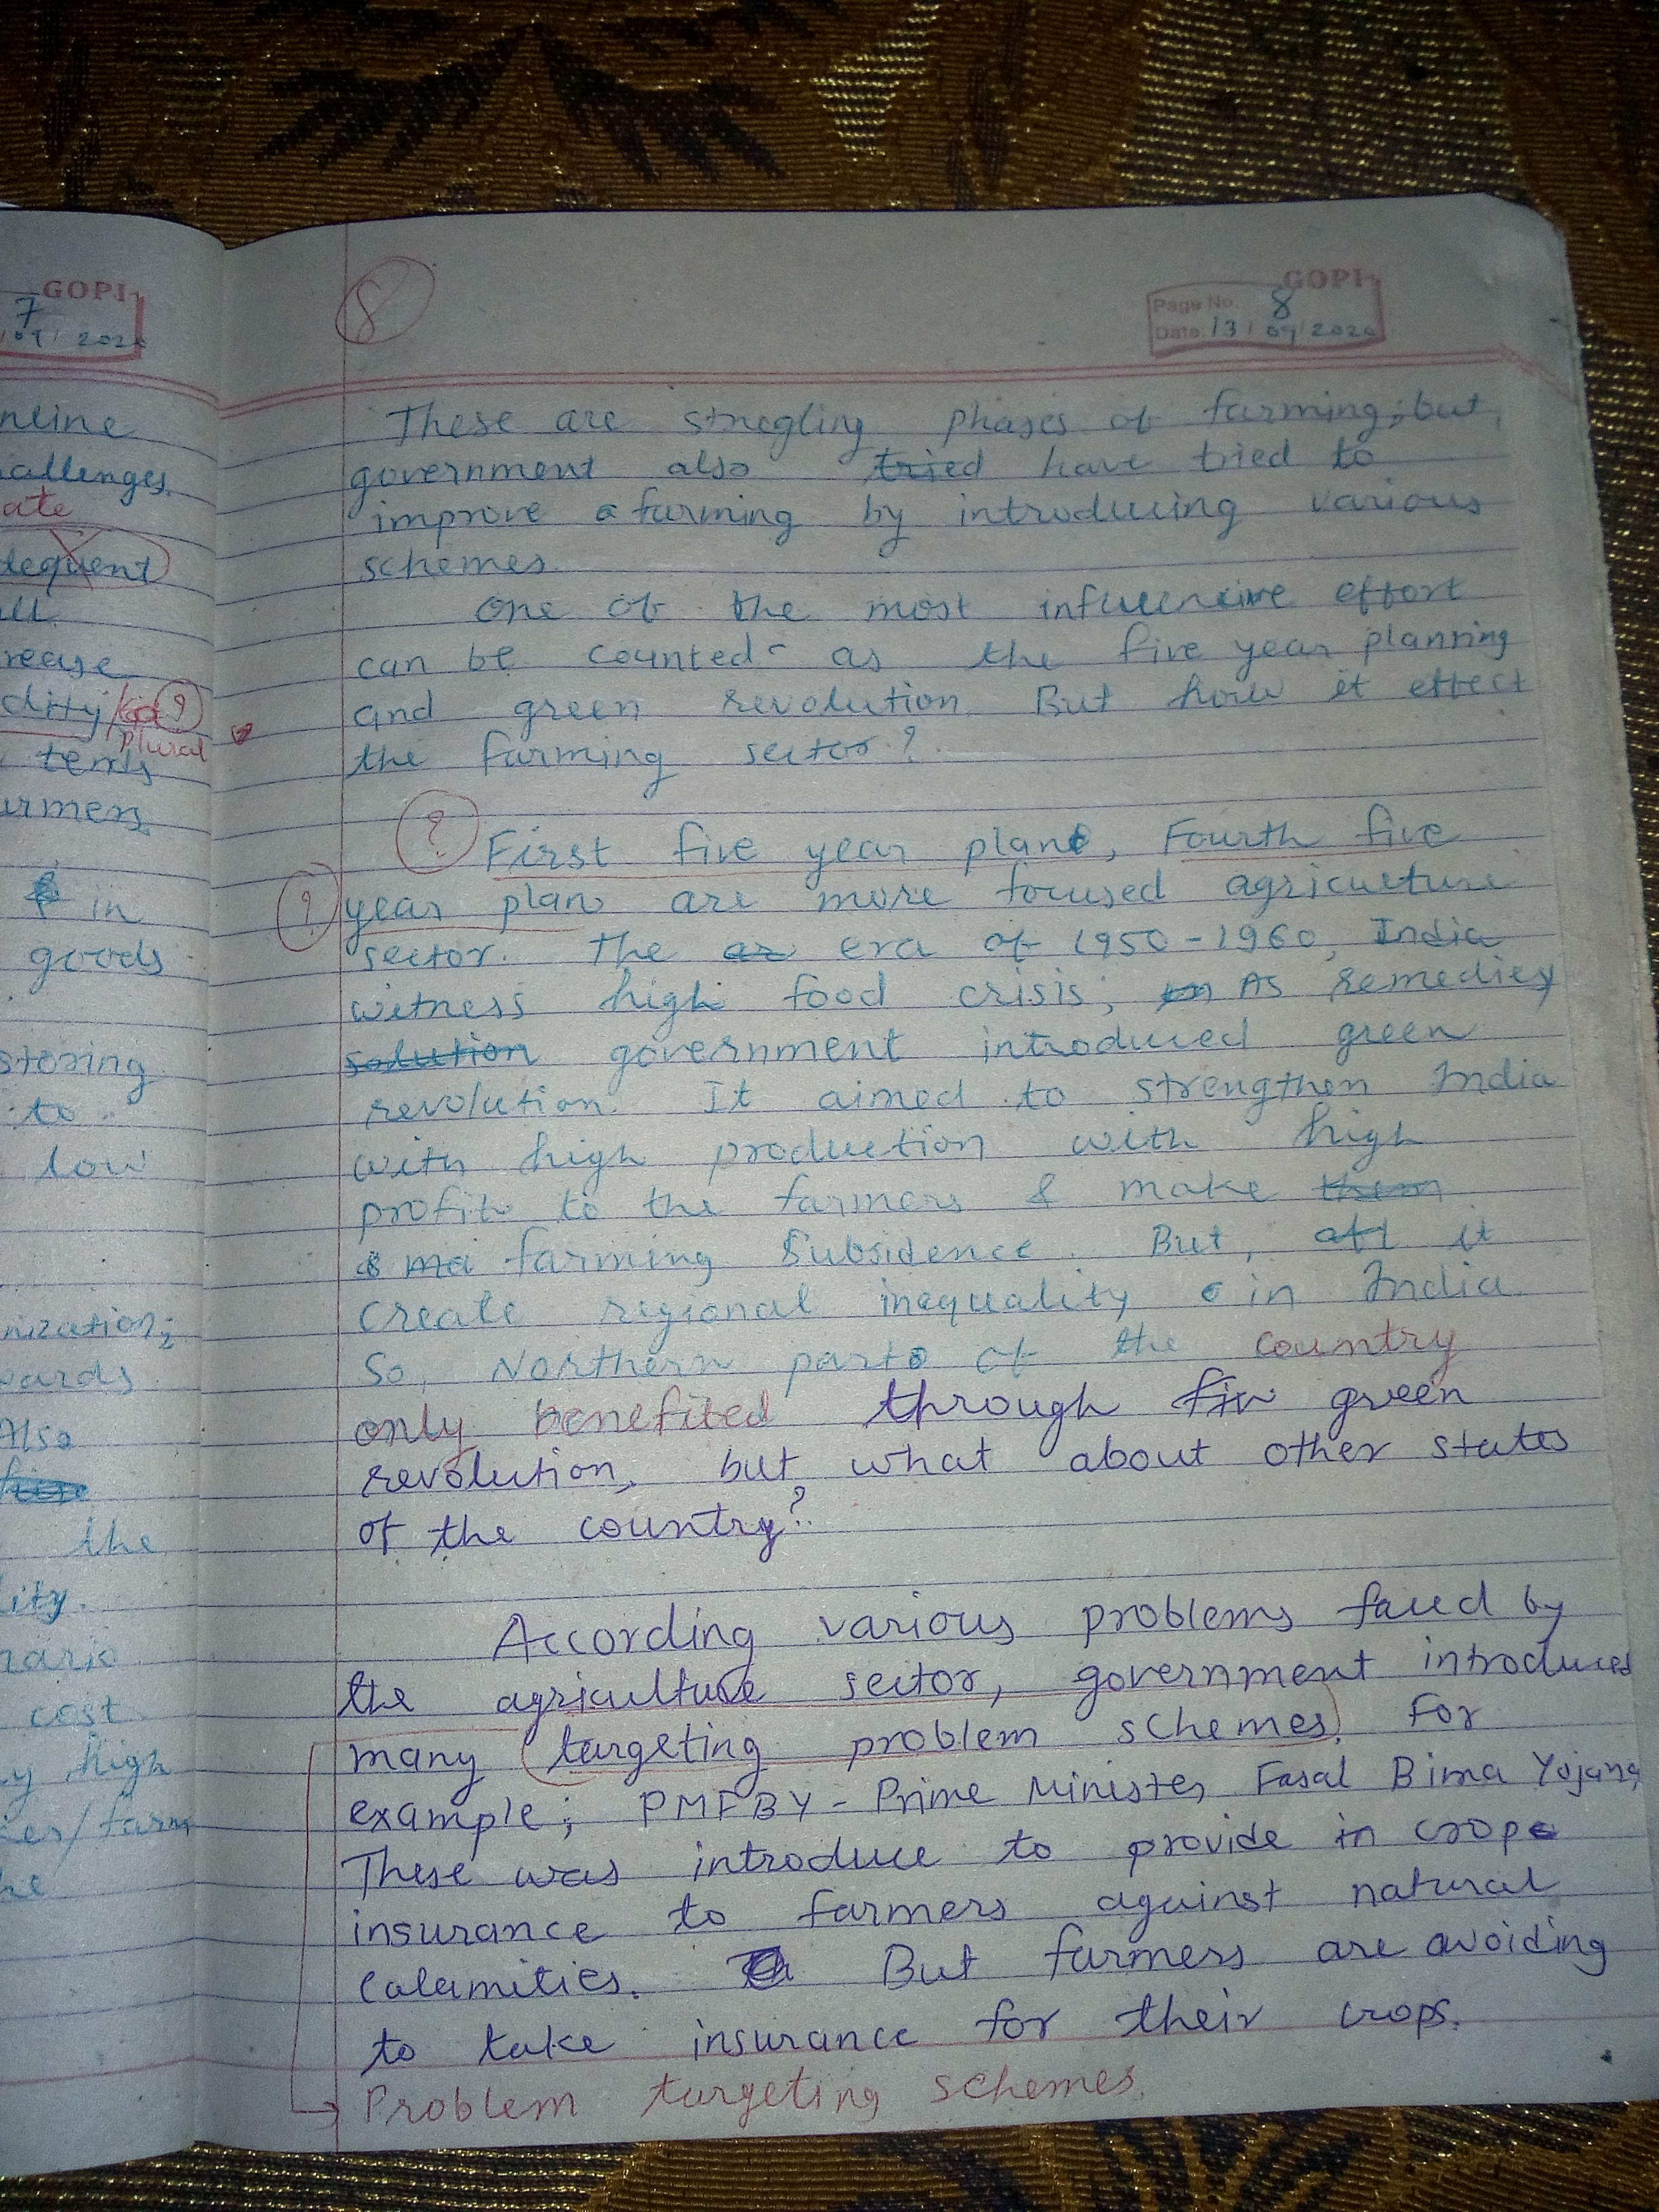 GOPI
7
09/2020
nline
allenges.
ate
dequent
all
rease
plural
tends
armers
in
goods
storing
to
low
nization;
wards
Also
the
lity.
nario
cost
y high
er/farm
he
8
GOPI
Page No. 8
Date: 13/09/2020
These are stregling phases of farming; but,
government also tried have tried to
improve a farming by introducing various
schemes.
One of the most influencive effort
can be counted as the five year planning
and green revolution. But how it effect
the farming sector?
?
First five year plan, Fourth five
?
year plan are more focused agriculture
sector. The ar era of 1950-1960, India
witness high food crisis, As remedies
solution government introduced green
revolution. It aimed to strengthen India
with high production with high
profit to the farmers & make them
& ma farming Subsidence. But, it
create regional inequality in India.
So, Northern part of the country
only benefited through fiv green
revolution, but what about other states
of the country?
According various problems faced by
the agriculture sector, government introduced
many targeting problem schemes. For
example; PMFBY - Prime Minister Fasal Bima Yojana
These was introduce to provide in crop
insurance to farmers against natural
calamities. But farmers are avoiding
to take insurance for their crops.
Problem targeting schemes.